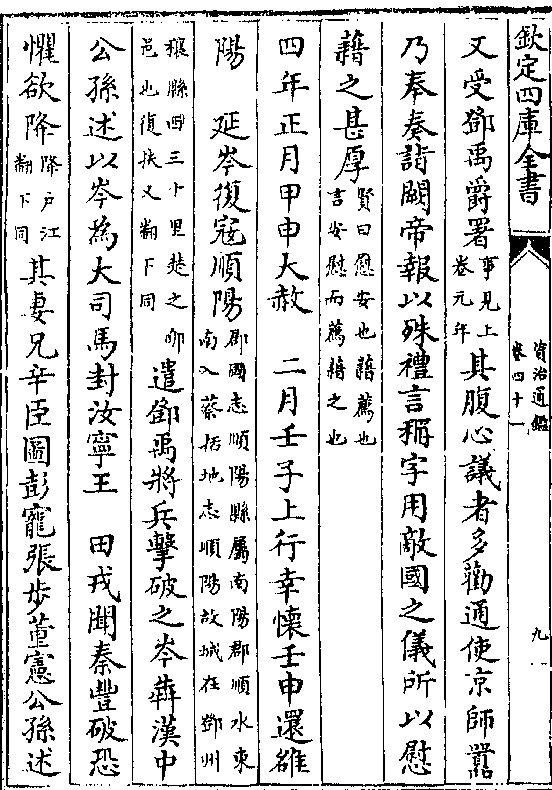 欽定四庫全書
資治通鑑
卷四十一
九
又受鄧禹爵署事見上卷元年其腹心議者多勸通使京師囂
乃奉奏詣闕帝報以殊禮言稱字用敵國之儀所以慰
藉之甚厚賢曰慰安也藉薦也言安慰而薦藉之也
四年正月甲申大赦 二月壬子上行幸懷壬申還雒
陽 延岑復寇順陽郡國志順陽縣屬南陽郡順水東南入蔡括地志順陽故城在鄧州
穰縣西三十里楚之郇邑也復扶又翻下同遣鄧禹將兵擊破之岑犇漢中
公孫述以岑為大司馬封汝寧王 田戎聞秦豐破恐
懼欲降降戶江翻下同其妻兄辛臣圖彭寵張步董憲公孫述